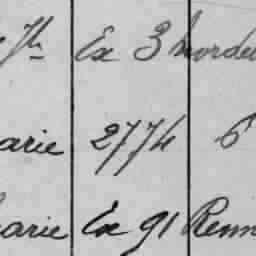 7h Ex 3 Mordel
arie 2774 6
arie Ex 91 Renn